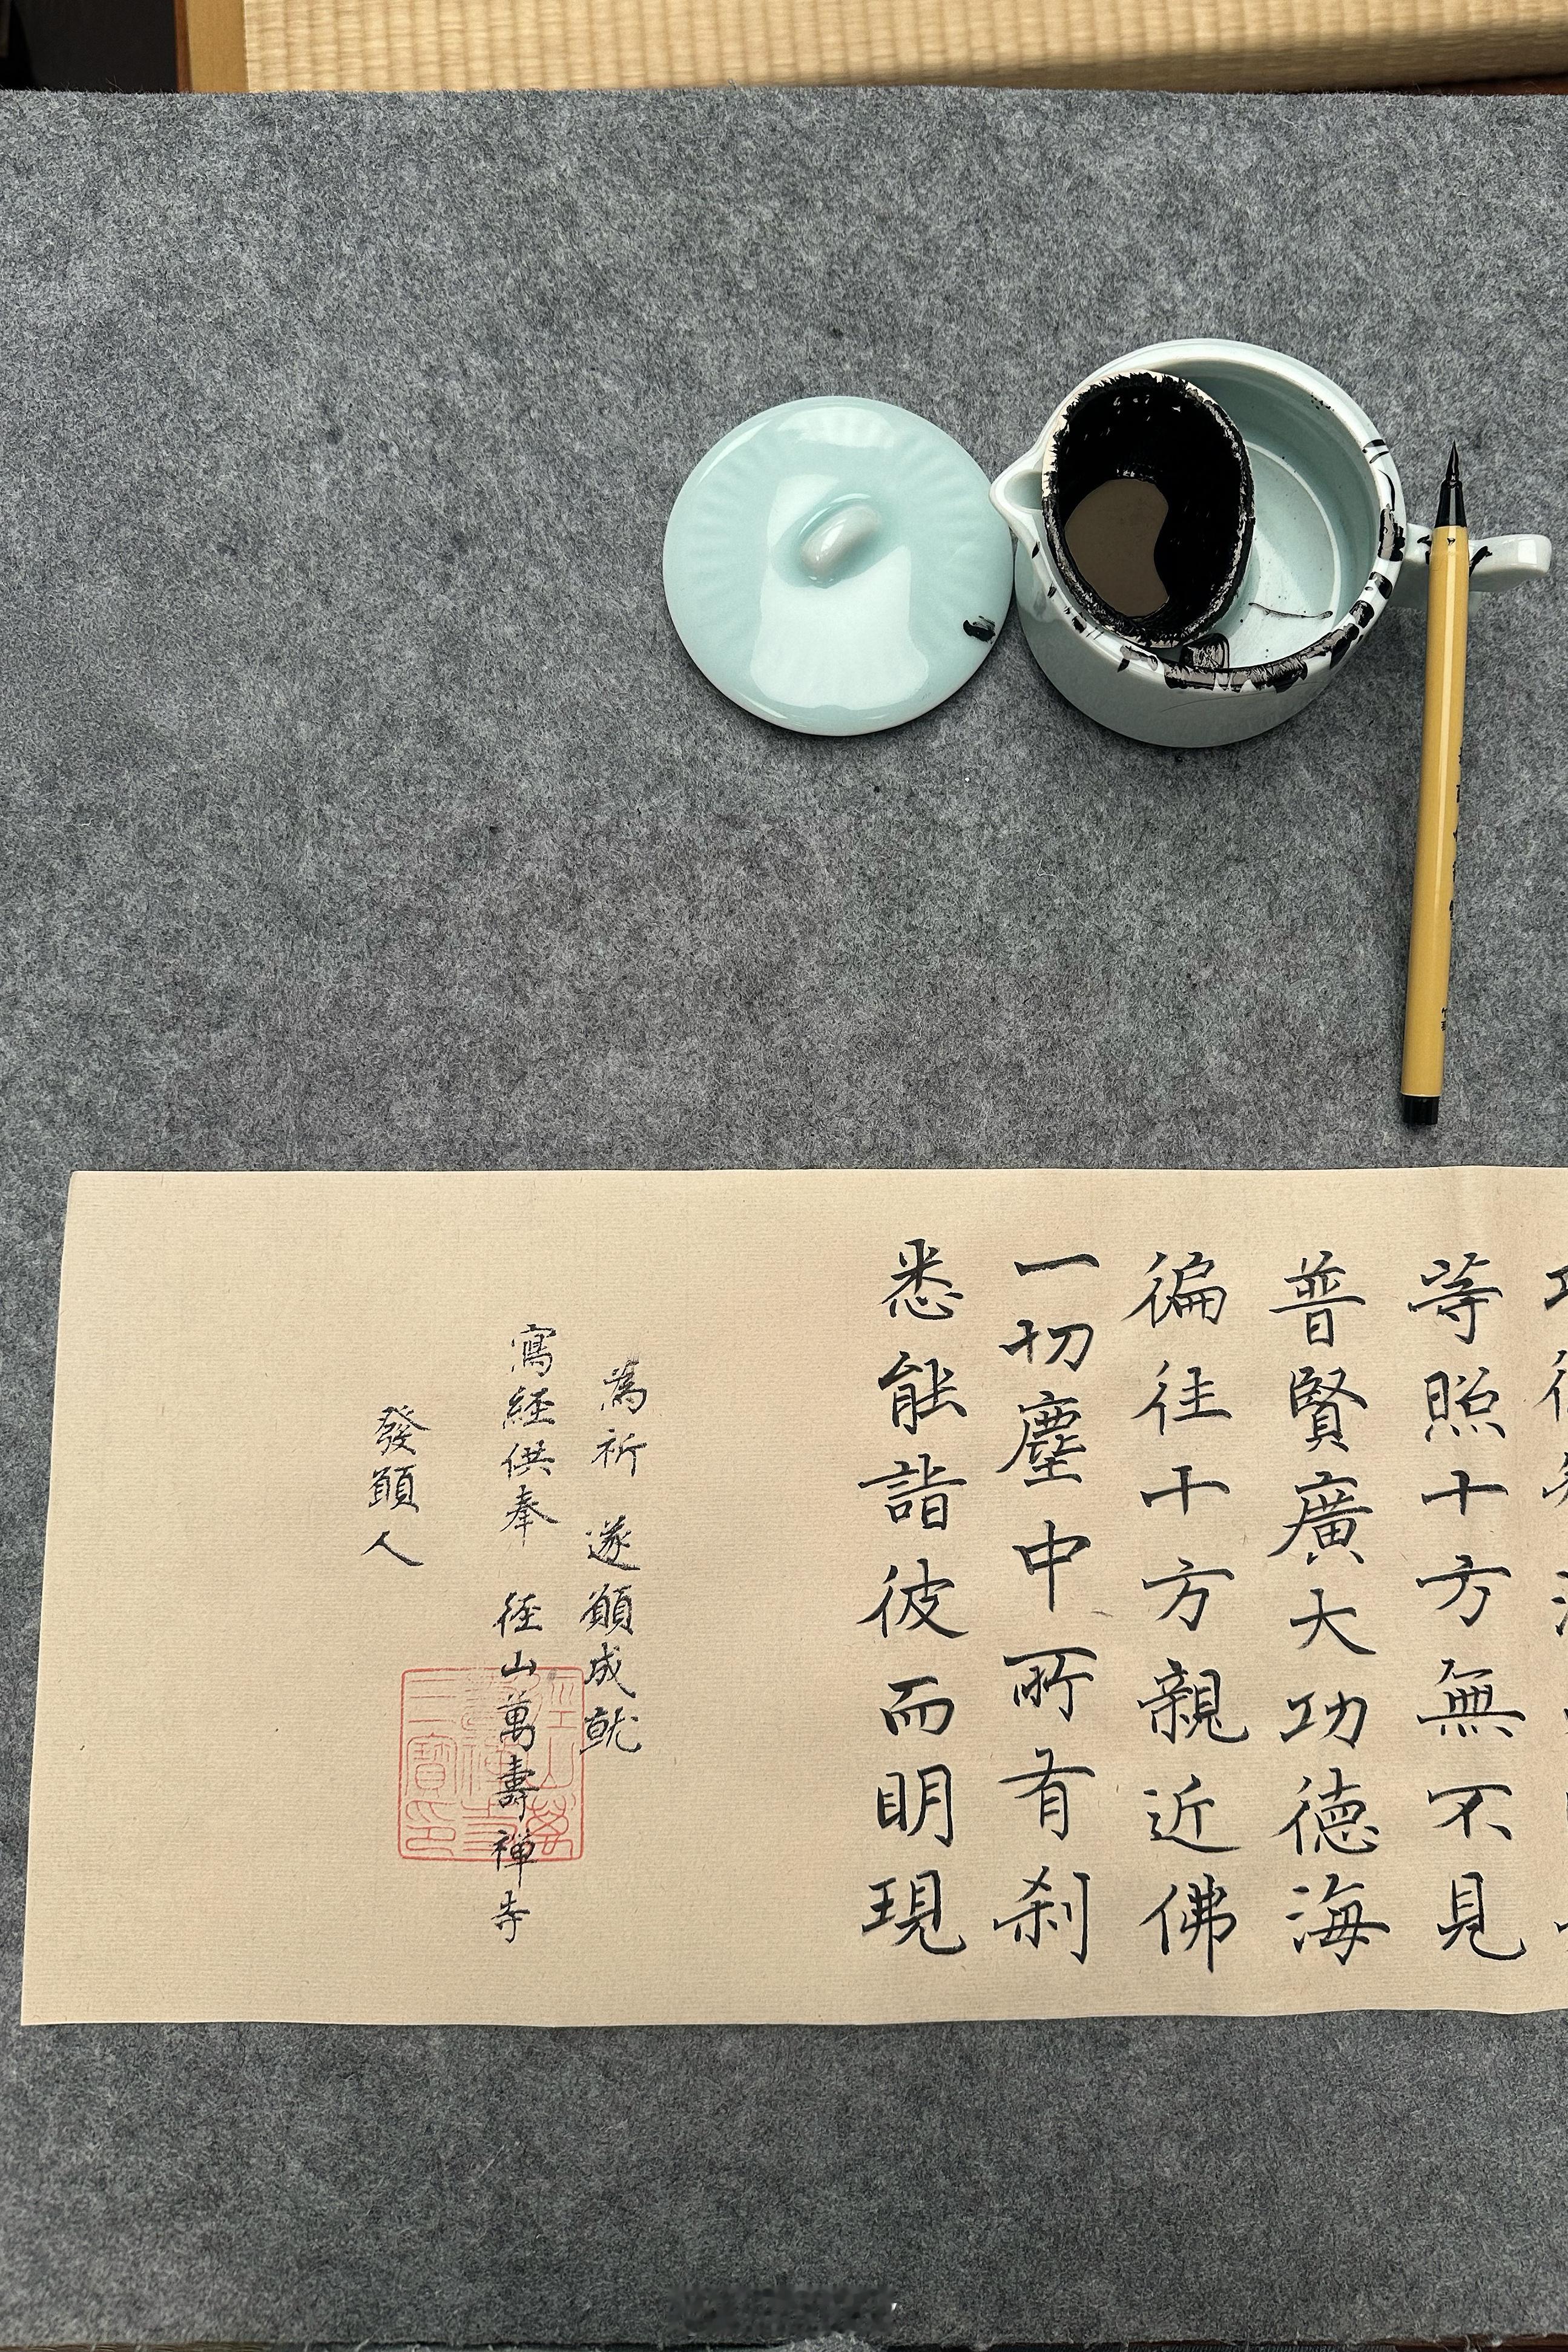 等照十方無不見
普賢廣大功德海
徧往十方親近佛
一切塵中所有刹
悉能詣彼而明現
為祈 遂願成就
寫経供奉 徑山萬壽禅寺
發願人
徑山萬壽禅寺三寶印